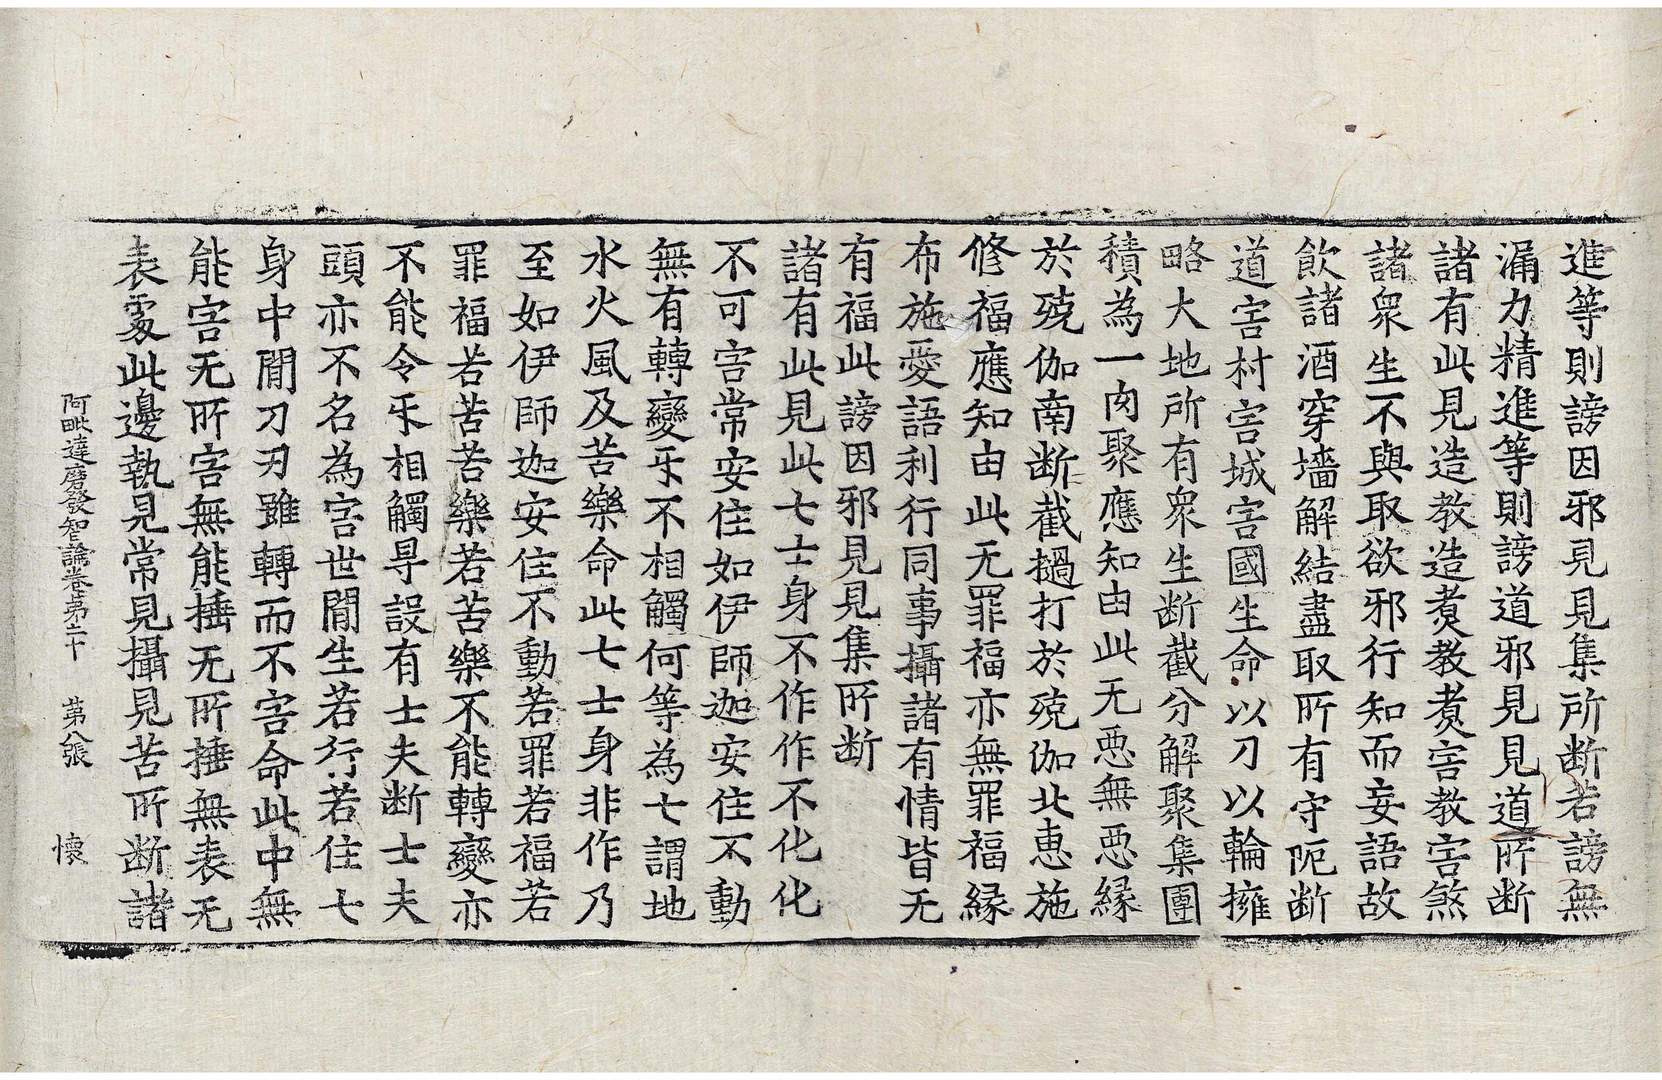 進等則謗因邪見見集所断若謗無
漏力精進等則謗道邪見見道所断
諸有此見造教造煑教煑害教害煞
諸衆生不與取欲邪行知而妄語故
飲諸酒穿墻解結盡取所有守阨断
道害村害城害國生命以刀以輪擁
略大地所有衆生断截分解聚集團
積為一肉聚應知由此无悪無悪縁
於殑伽南断截撾打於殑伽北恵施
修福應知由此无罪福亦無罪福縁
布施愛語利行同事攝諸有情皆无
有福此謗因邪見見集所断
諸有此見此七士身不作作不化化
不可害常安住如伊師迦安住不動
無有轉變乐不相觸何等為七謂地
水火風及苦樂命此七士身非作乃
至如伊師迦安住不動若罪若福若
罪福若苦若樂若苦樂不能轉變亦
不能令乐相觸㝵設有士夫断士夫
頭亦不名為害世間生若行若住七
身中間刀刃雖轉而不害命此中無
能害无所害無能捶无所捶無表无
表處此邊執見常見攝見苦所断諸
阿毗達磨發智論卷苐二十 苐八張 懷